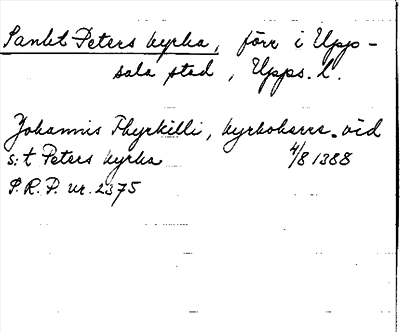 Sankt Peters kyrka, förr i Upp-
sala stad, Upps. l.
Johannis Thyrkilli, kyrkoherre vid
s:t Peters kyrka 4/8 1388
P.R.P. nr. 2375